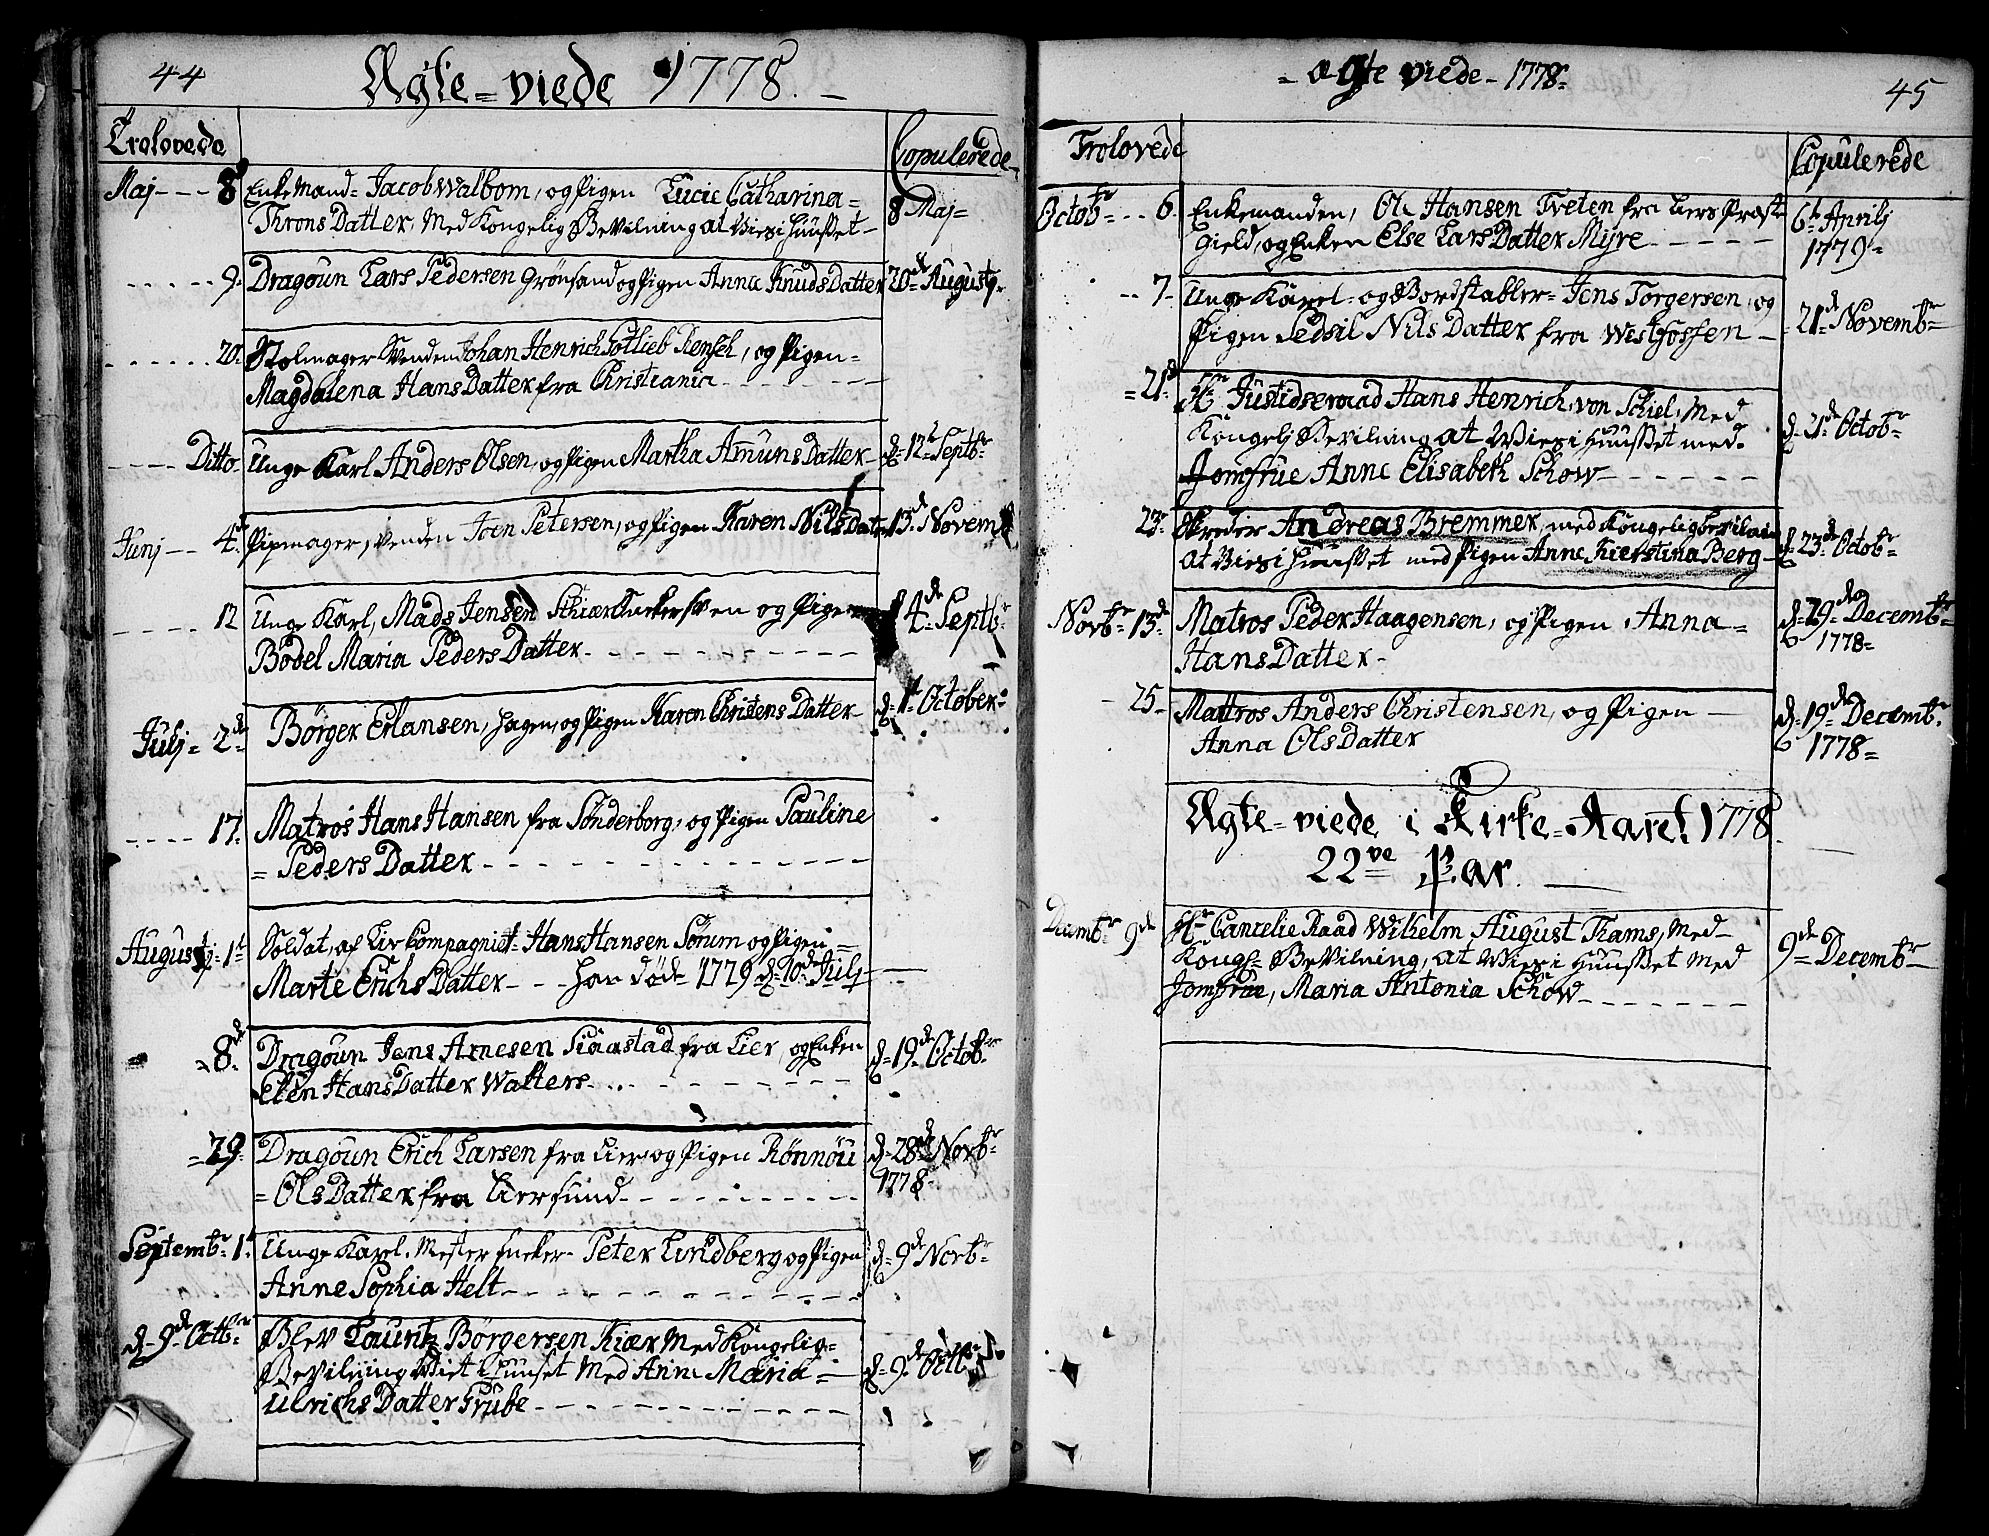 44
Ægte=viede 1778.
Trolovede
Copulerede
Maj - - - 8d
Enke Mand= Jacob Walbom, og Pigen Lucie Catharina=
Throns Datter, Med Kongelig Bevilning at Vies i Huusset
8 Maj=
9.
Dragoun Lars Pedersen Grønsand og Pigen Anne Knuds Datter
20de Augustj.
20.
Stolmager Svenden Johan Henrich Gotlieb, og Pigen=
Magdalena Hans Datter fra Christiania
Ditto
Unge Karl Anders Olsen, og Pigen Martha Amuns Datter
d. 12t Septbr
Junj - - 4de
Pipmager Svenden Joen Petersen, og Pigen Karen Nils dater
13d Novemb
12
Unge Karl, Mads Jensen Skiærtueker Sven og Pigen
Bodel Maria Peders Datter
14de Septbr
Julj = 2de
Børger Erlansen, Hagen, og Pigen Karen Christens Datter
d. 1t October
17.
Matros Hans Hansen fra Sønderborg, og Pigen Pauline
= Peders Datter
Augustj 1t
Soldat, af Liv Compagniet= Hans Hansen Sørum og Pigen =
Marte Erichs Datter - - - Han død 1779 d. 10de Julj
8de
Dragoun Jens Arnesen Siaastad fra Lier, og Enken
Elen Hans Datter Walters
d. 19de Octobr
= 29.
Dragoun Erich Larsen fra Lier og Pigen Rønnøu
= Ols Datter fra Lierfund
d. 28de Novbr
1778
Septembr 1t
Unge Karel. Mester Sneker Peter Lundberg og Pigen
Anne Sophia Helt
d. 9de Novbr
d. 9de Octbr
Blev Lauritz Børgersen Kiær Med Kongelig=
Bevilning Viet i Huuset Med Anne Maria =
Ulrichs Datter Grube
d. 9de Octbr
= Ægte viede - 1778=
45
Trolovede
Copulerede
Octobr - - 6.
Enkemanden, Ole Hansen Tveten fra Liers Præste
Gield, og Enken Else Lars Datter Myre
6t Aprilj
1779=
- - 7.
Unge Karel= og Bordstabler= Jens Torgersen, og
Pigen Sedsil Nils Datter fra Westfossen
21de Novembr
= 21d
Hr Justidseraad Hans Henrich, von Schiel, Med
Kongelj Bevilning at Vies i Huusset med.
Jomfrue Anne Elisabeth Schow
d. 21de Octobr
23
Skreder Andreas Bremmer, med Kongelig bevilning
at Vies i Huusset med Pigen Anne Kierstina Berg
d. 23de Octobr
Novbr 13de
Matros Peder Haagensen, og Pigen, Anna=
Hans Datter
d. 29de Decembr
1778
25
Mattros Anders Christensen, og Pigen
Anna Ols Datter
d. 19de Decembr
1778=
Ægte=viede i Kirke=Aaret 1778
22ve Par.
Decembr 9de
Hr Cancelie Raad Wilhelm August Thams, Med
Kongl. Bevilning, at Vies i Huusset Med
Jomfrue, Maria Antonia Schow
9de Decembr